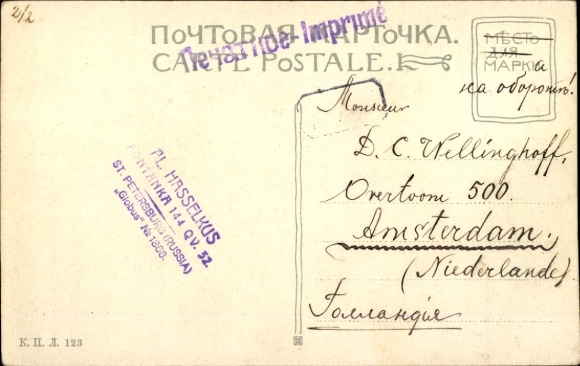 2/2
ПОЧТОВАЯ КАРТОЧКА.
CARTE POSTALE.
Печатное-Imprimé
МѢСТО
ДЛЯ
МАРКИ
на оборотѣ!
Monsieur
D. C. Wellinghoff,
Overtoom 500.
Amsterdam.
(Niederlande)
Голландія
AL. HASSELKUS
FONTANKA 144 QV. 52.
ST. PETERSBURG (RUSSIA)
„Globus" № 1868.
К. П. Л. 123